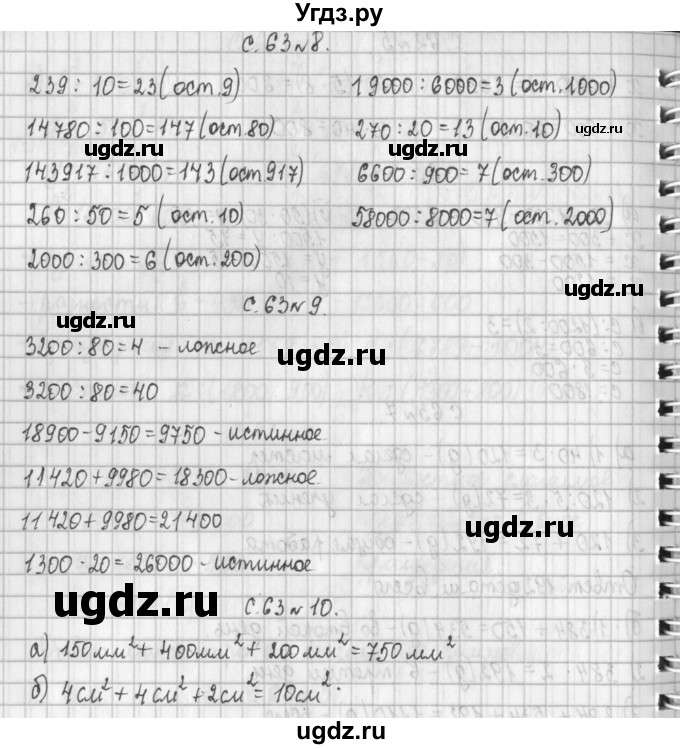 Угдз.ру
с.63 №8.
239 : 10 = 23 (ост. 9)
19000 : 6000 = 3 (ост. 1000)
14780 : 100 = 147 (ост. 80)
270 : 20 = 13 (ост. 10)
ugdz.ru
ugdz.ru
143917 : 1000 = 143 (ост 917)
6600 : 900 = 7 (ост. 300)
260 : 50 = 5 (ост. 10)
58000 : 8000 = 7 (ост. 2000)
2000 : 300 = 6 (ост. 200)
ugdz.ru
с.63 №9.
ugdz.ru
3200 : 80 = 4 - ложное
ugdz.ru
3200 : 80 = 40
18900 - 9150 = 9750 - истинное
11420 + 9980 = 18300 - ложное
11420 + 9980 = 21400
ugdz.ru
1300 · 20 = 26000 - истинное
ugdz.ru
с.63 №10.
а) 150 мм² + 400 мм² + 200 мм² = 750 мм²
б) 4 см² + 4 см² + 2 см² = 10 см².
ugdz.ru
ugdz.ru